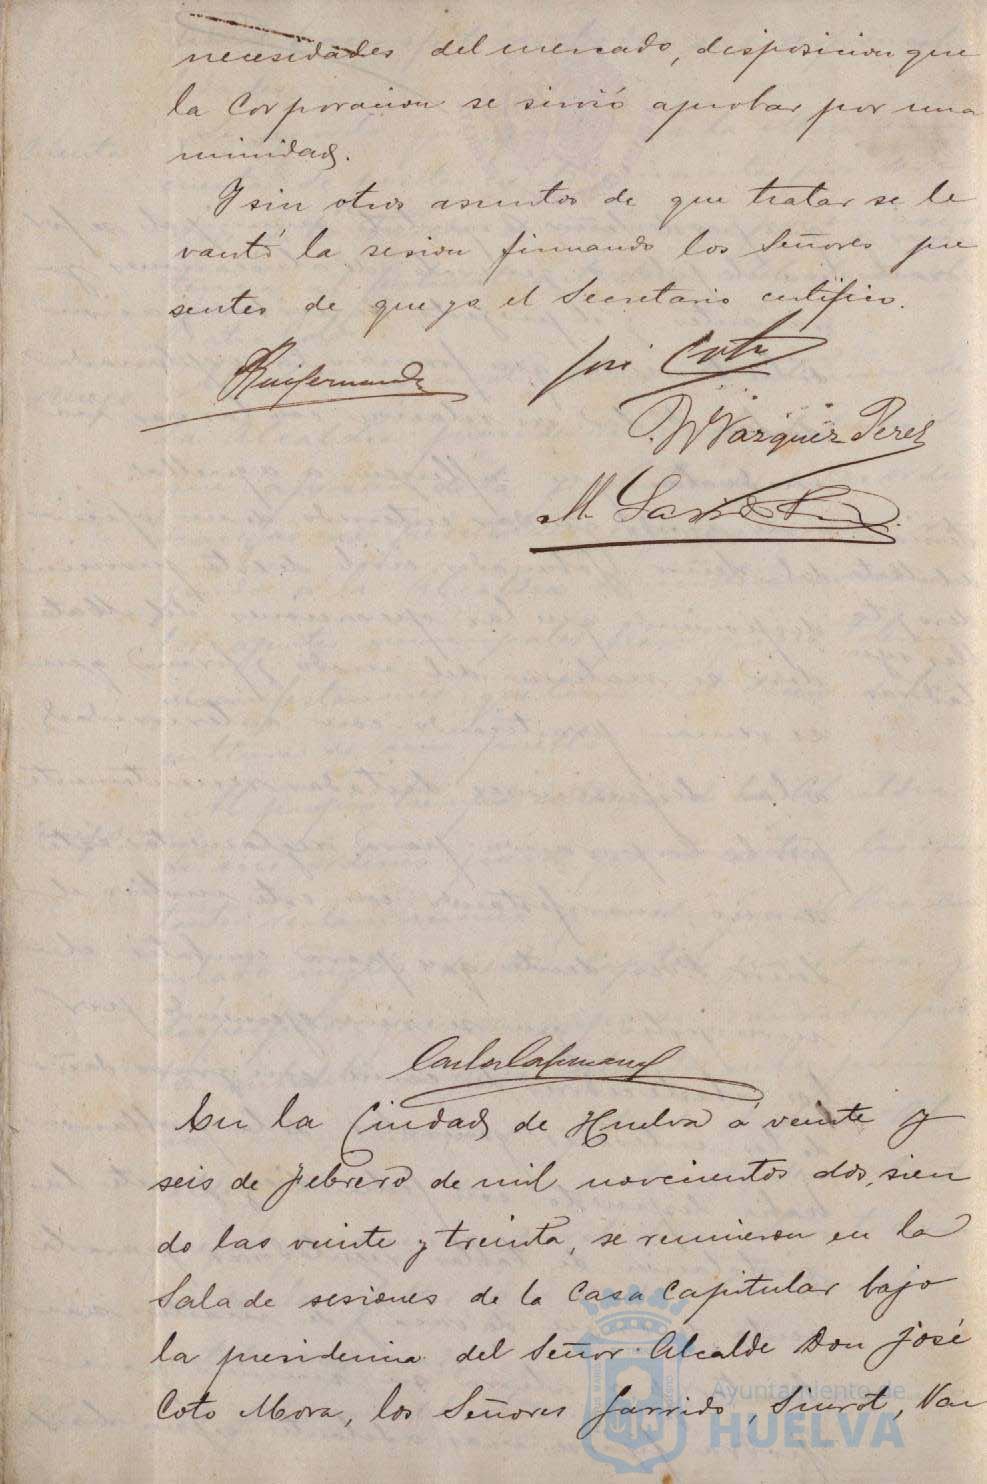 necesidades del mercado, disposicion que
la Corporacion se sirvió aprobar por una
nimidad.
Y sin otros asuntos de que tratar se le
vantó la sesion firmando los Señores pre
sentes de que yo el Secretario certifico.
José Coto
Vazquez Perez
M.
En la Ciudad de Huelva á veinte y
seis de Febrero de mil novecientos dos, sien
do las veinte y treinta, se reunieron en la
Sala de sesiones de la Casa Capitular bajo
la presidencia del Señor Alcalde Don José
Coto Mora, los Señores Garrido, Siurot, Vaz
Ayuntamiento de
HUELVA